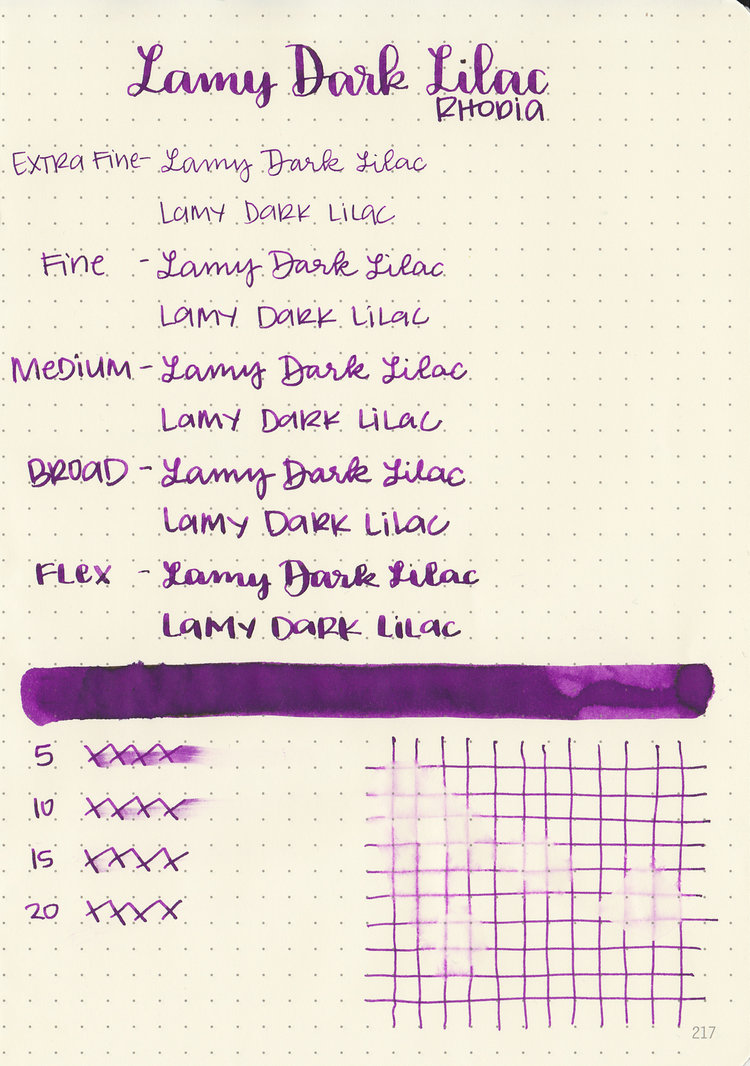 Lamy Dark Lilac
RHODIA
EXTRA FINE - Lamy Dark Lilac
LAMY DARK LILAC
FINE - Lamy Dark Lilac
LAMY DARK LILAC
MEDIUM - Lamy Dark Lilac
LAMY DARK LILAC
BROAD - Lamy Dark Lilac
LAMY DARK LILAC
FLEX - Lamy Dark Lilac
LAMY DARK LILAC
5 XXXX
10 XXXX
15 XXXX
20 XXXX
217